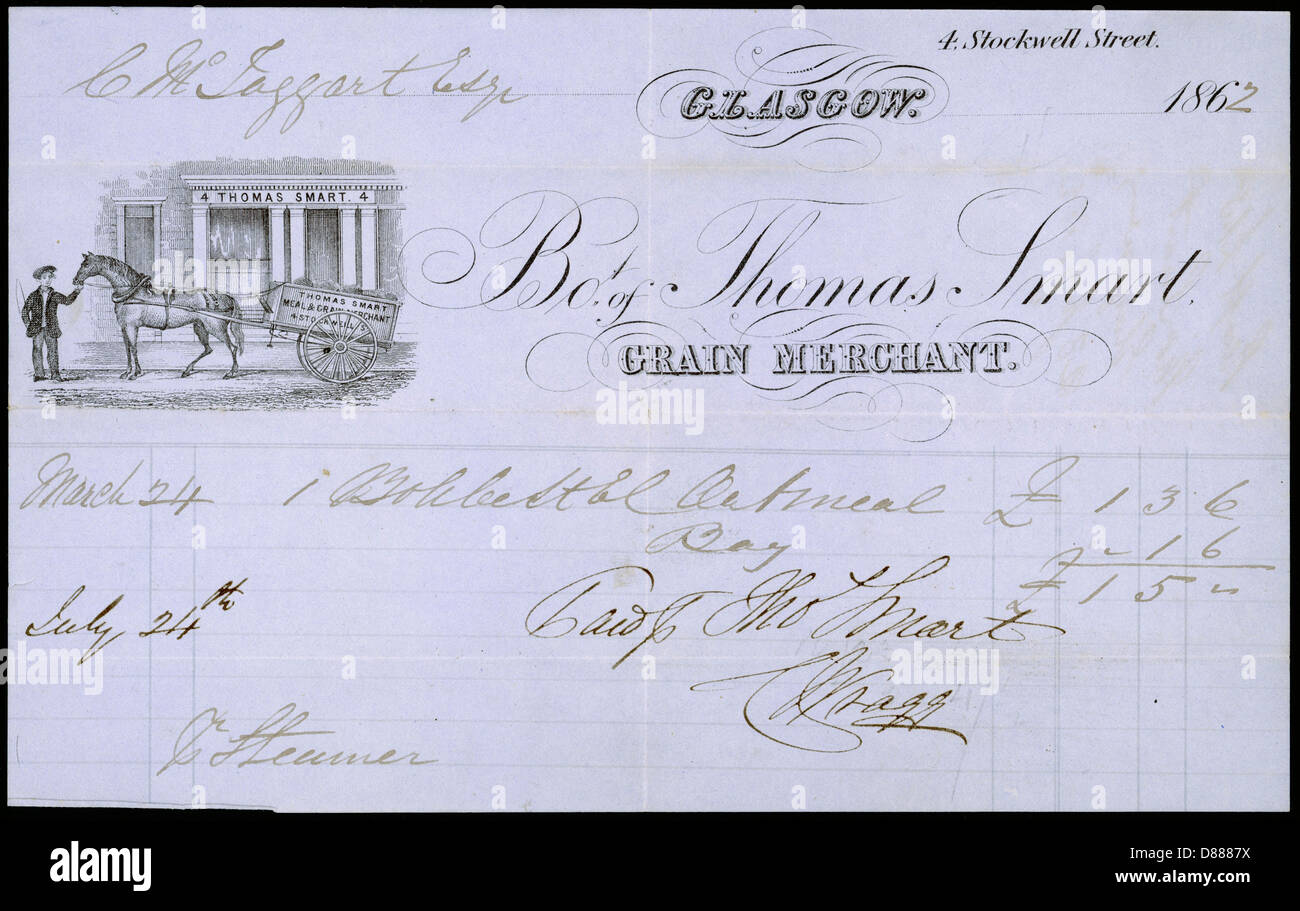 4, Stockwell Street.
C McTaggart Esqr
GLASGOW. 1862
4 THOMAS SMART. 4
THOMAS SMART
MEAL & GRAIN MERCHANT
4 STOCKWELL ST
Bot. of Thomas Smart,
GRAIN MERCHANT.
March 24 1 Boll Best El Oatmeal £ 1 3 6
Bag " 1 6
£ 1 5 "
July, 24th Paid Tho Smart
pr Steamer
alamy
Image ID: D8887X
www.alamy.com